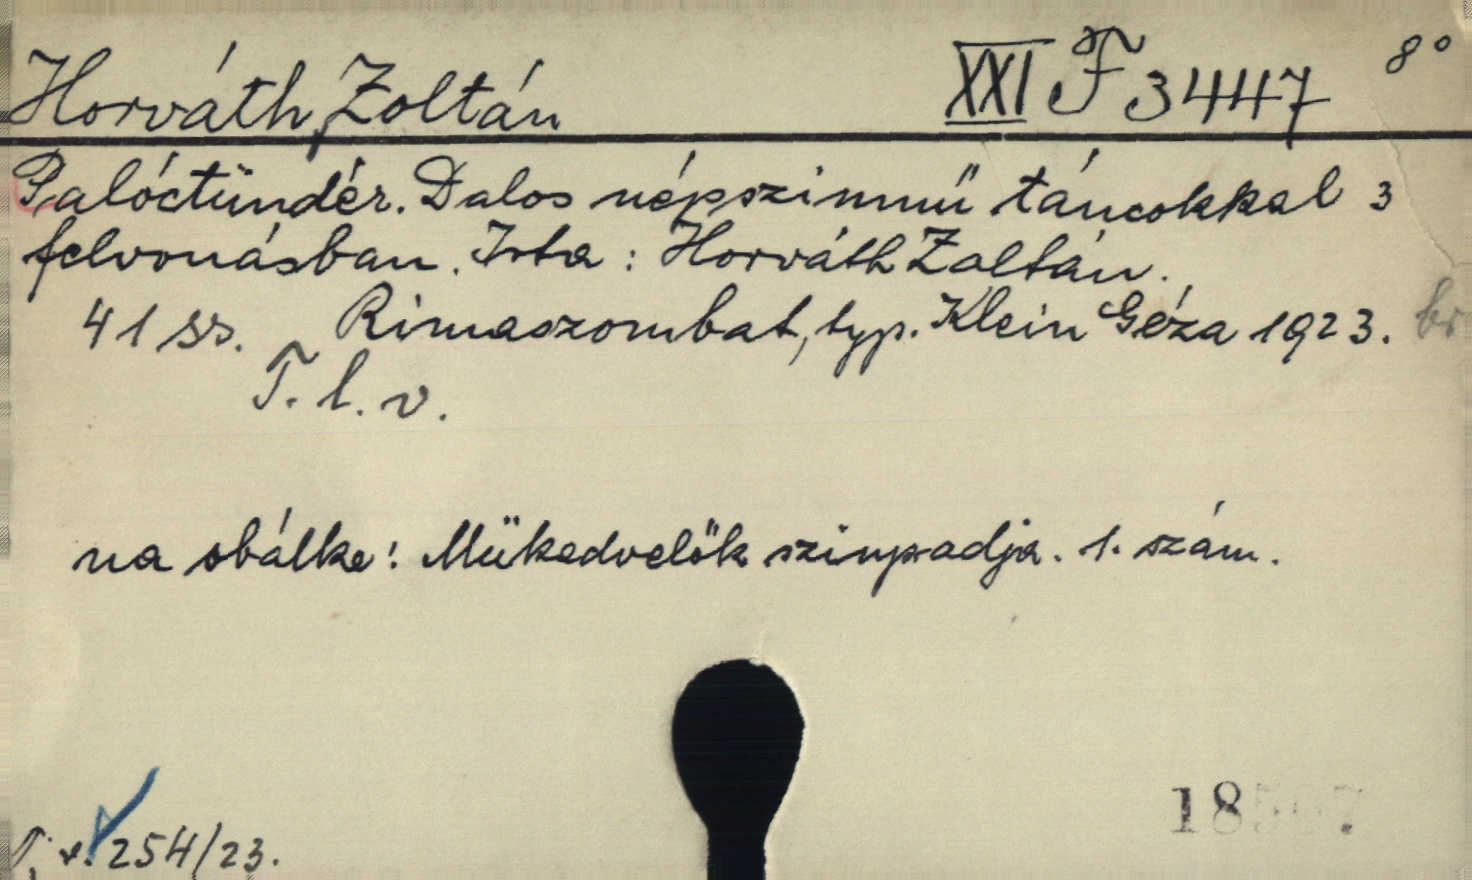 Horváth Zoltán XXI F 3447 8°
Palóctündér. Dalos népszinmű táncokkal 3
felvonásban. Irta: Horváth Zoltán.
41 ss. Rimaszombat, typ. Klein Géza 1923. br
T. l. v.
na obálke: Mükedvelők szinpadja. 1. szám.
254/23.
18